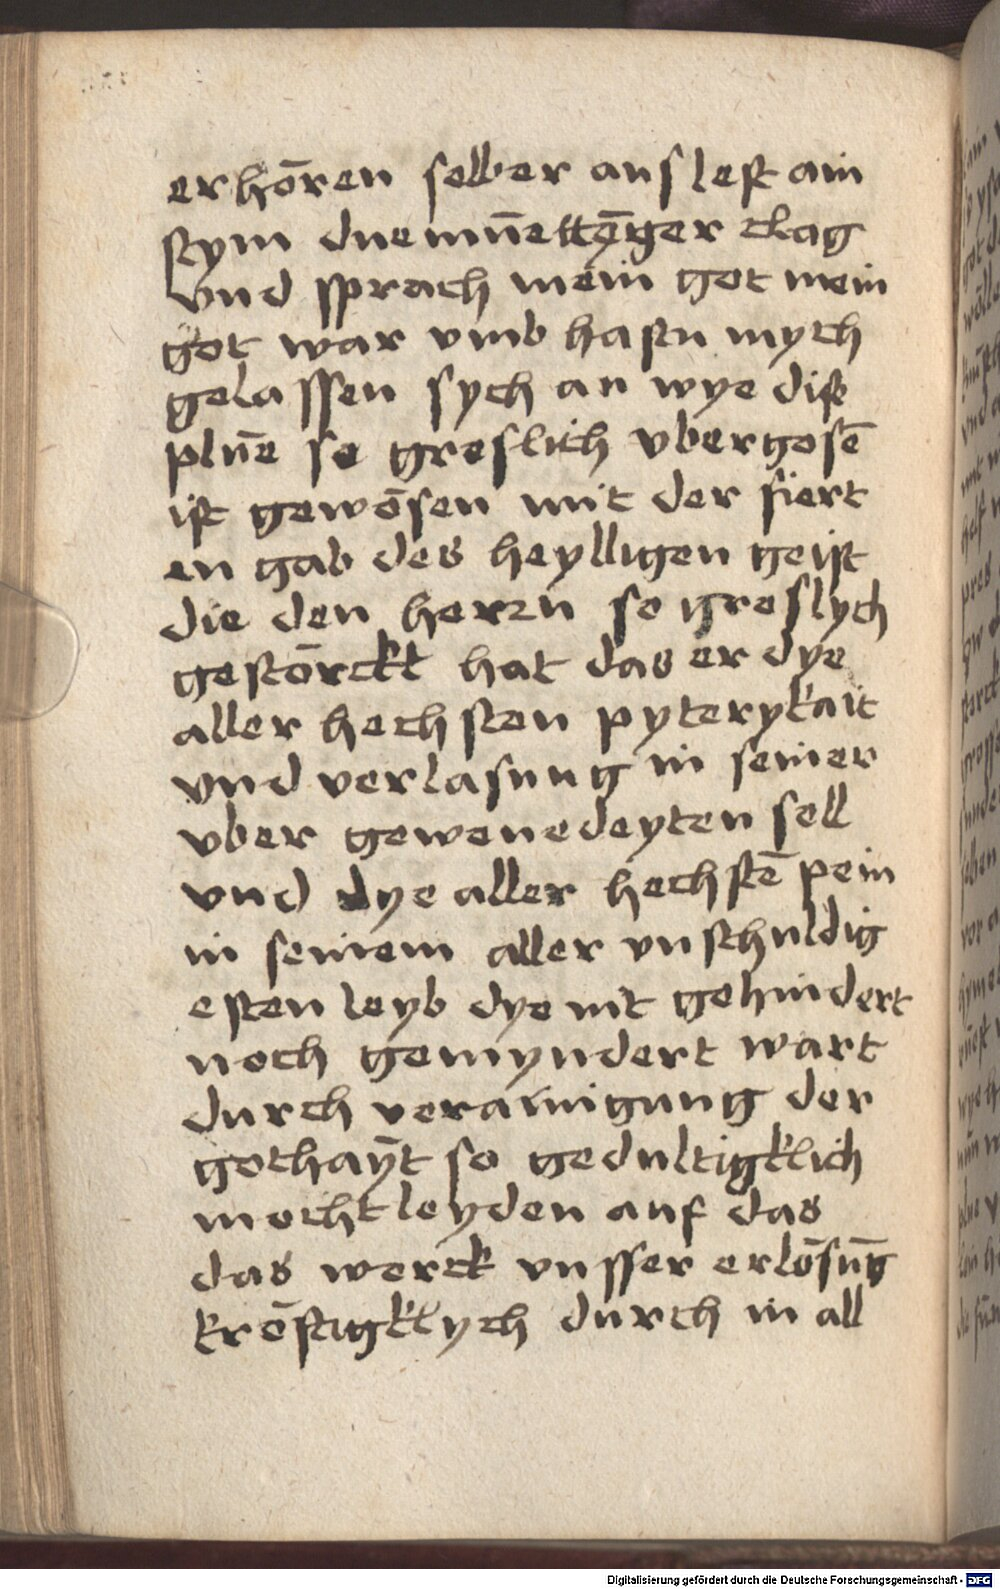 erhōren selber aus lest ain
stym duemūettēger clag
vnd sprach mein got mein
got war vmb hastu mych
gelassen sych an wye dise
plūe so groslich vbergosē
ist gewōsen mit der fiert
en gab des heylligen geist
die den herrn so groslych
gestōrckt hat das er dye
aller hechsten pyterykait
vnd verlasung in seiner
vber gewenedeyten sell
vnd dye aller hechstē pein
in seinem aller vnschuldig
esten leyb dye nit gehindert
noch gemyndert wart
durch verainigung der
gothaȳt so gedultigklich
mocht leyden auf das
das werck vnsser erlōsūg
krōftigklych durch in all
Digitalisierung gefördert durch die Deutsche Forschungsgemeinschaft - DFG